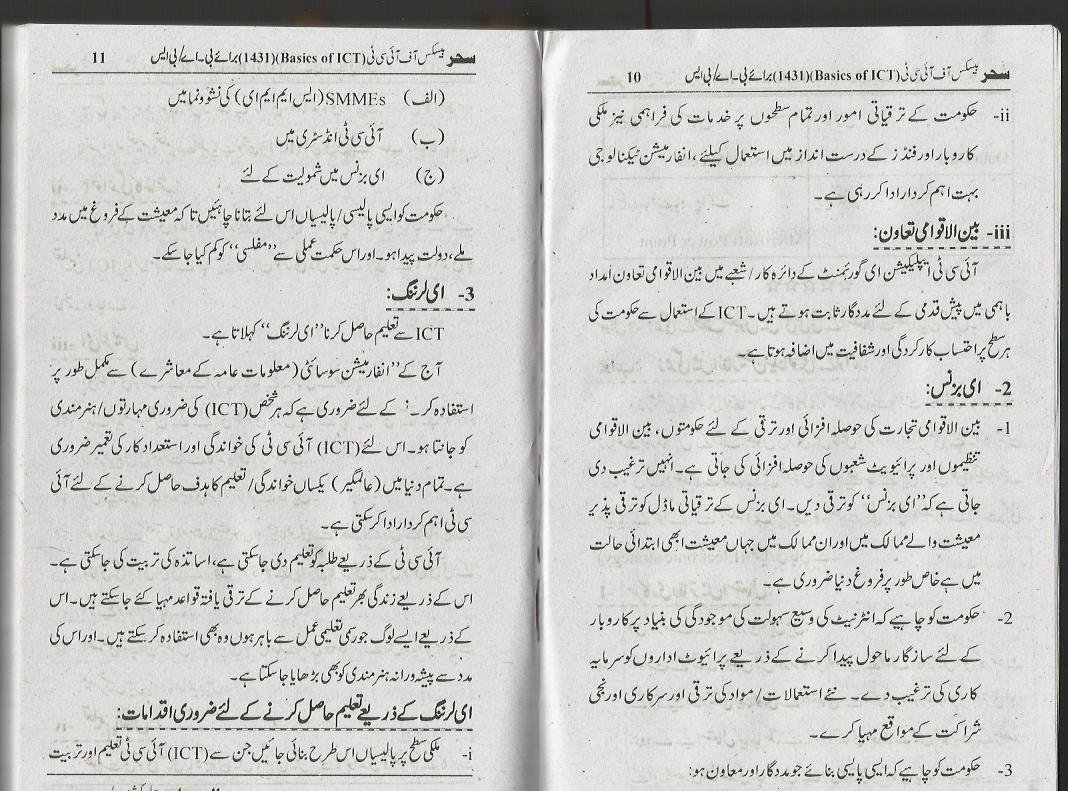 سحر بیسکس آف آئی سی ٹی (Basics of ICT)(1431) برائے بی۔اے/بی ایس 10
ii- حکومت کے ترقیاتی امور اور تمام سطحوں پر خدمات کی فراہمی نیز ملکی
کاروبار اور فنڈز کے درست انداز میں استعمال کیلئے، انفارمیشن ٹیکنالوجی
بہت اہم کردار ادا کر رہی ہے۔
iii- بین الاقوامی تعاون:
آئی سی ٹی ایپلیکیشن ای گورنمنٹ کے دائرہ کار/شعبے میں بین الاقوامی تعاون امداد
باہمی میں پیش قدمی کے لئے مددگار ثابت ہوتے ہیں۔ ICT کے استعمال سے حکومت کی
ہر سطح پر احتساب کارکردگی اور شفافیت میں اضافہ ہوتا ہے۔
2- ای بزنس:
1- بین الاقوامی تجارت کی حوصلہ افزائی اور ترقی کے لئے حکومتوں، بین الاقوامی
تنظیموں اور پرائیویٹ شعبوں کی حوصلہ افزائی کی جاتی ہے۔ انہیں ترغیب دی
جاتی ہے کہ ”ای بزنس“ کو ترقی دیں۔ ای بزنس کے ترقیاتی ماڈل کو ترقی پذیر
معیشت والے ممالک میں اور ان ممالک میں جہاں معیشت ابھی ابتدائی حالت
میں ہے خاص طور پر فروغ دینا ضروری ہے۔
2- حکومت کو چاہیے کہ انٹرنیٹ کی وسیع سہولت کی موجودگی کی بنیاد پر کاروبار
کے لئے سازگار ماحول پیدا کرنے کے ذریعے پرائیوٹ اداروں کو سرمایہ
کاری کی ترغیب دے۔ نئے استعمالات/مواد کی ترقی اور سرکاری اور نجی
شراکت کے مواقع مہیا کرے۔
3- حکومت کو چاہیے کہ ایسی پایسی بنائے جو مددگار اور معاون ہو:
سحر بیسکس آف آئی سی ٹی (Basics of ICT)(1431) برائے بی۔اے/بی ایس 11
(الف) SMMEs (ایس ایم ایم ای) کی نشوونما میں
(ب) آئی سی ٹی انڈسٹری میں
(ج) ای بزنس میں شمولیت کے لئے
حکومت کو ایسی پالیسی/پالیسیاں اس لئے بتانا چاہئیں تاکہ معیشت کے فروغ میں مدد
ملے، دولت پیدا ہو۔ اور اس حکمت عملی سے ”مفلسی“ کو کم کیا جا سکے۔
3- ای لرننگ:
ICT سے تعلیم حاصل کرنا ”ای لرننگ“ کہلاتا ہے۔
آج کے ”انفارمیشن سوسائٹی (معلومات عامہ کے معاشرے) سے مکمل طور پر
استفادہ کر کے لئے ضروری ہے کہ ہر شخص (ICT) کی ضروری مہارتوں/ہنرمندی
کو جانتا ہو۔ اس لئے (ICT) آئی سی ٹی کی خواندگی اور استعداد کار کی تعمیر ضروری
ہے۔ تمام دنیا میں (عالمگیر) یکساں خواندگی/تعلیم کا ہدف حاصل کرنے کے لئے آئی
سی ٹی اہم کردار ادا کر سکتی ہے۔
آئی سی ٹی کے ذریعے طلبہ کو تعلیم دی جا سکتی ہے، اساتذہ کی تربیت کی جا سکتی ہے۔
اس کے ذریعے زندگی بھر تعلیم حاصل کرنے کے ترقی یافتہ قواعد مہیا کئے جا سکتے ہیں۔ اس
کے ذریعے ایسے لوگ جو رسمی تعلیمی عمل سے باہر ہوں وہ بھی استفادہ کر سکتے ہیں۔ اور اس کی
مدد سے پیشہ ورانہ ہنرمندی کو بھی بڑھایا جا سکتا ہے۔
ای لرننگ کے ذریعے تعلیم حاصل کرنے کے لئے ضروری اقدامات:
i- ملکی سطح پر پالیسیاں اس طرح بنائی جائیں جن سے (ICT) آئی سی ٹی تعلیم اور تربیت